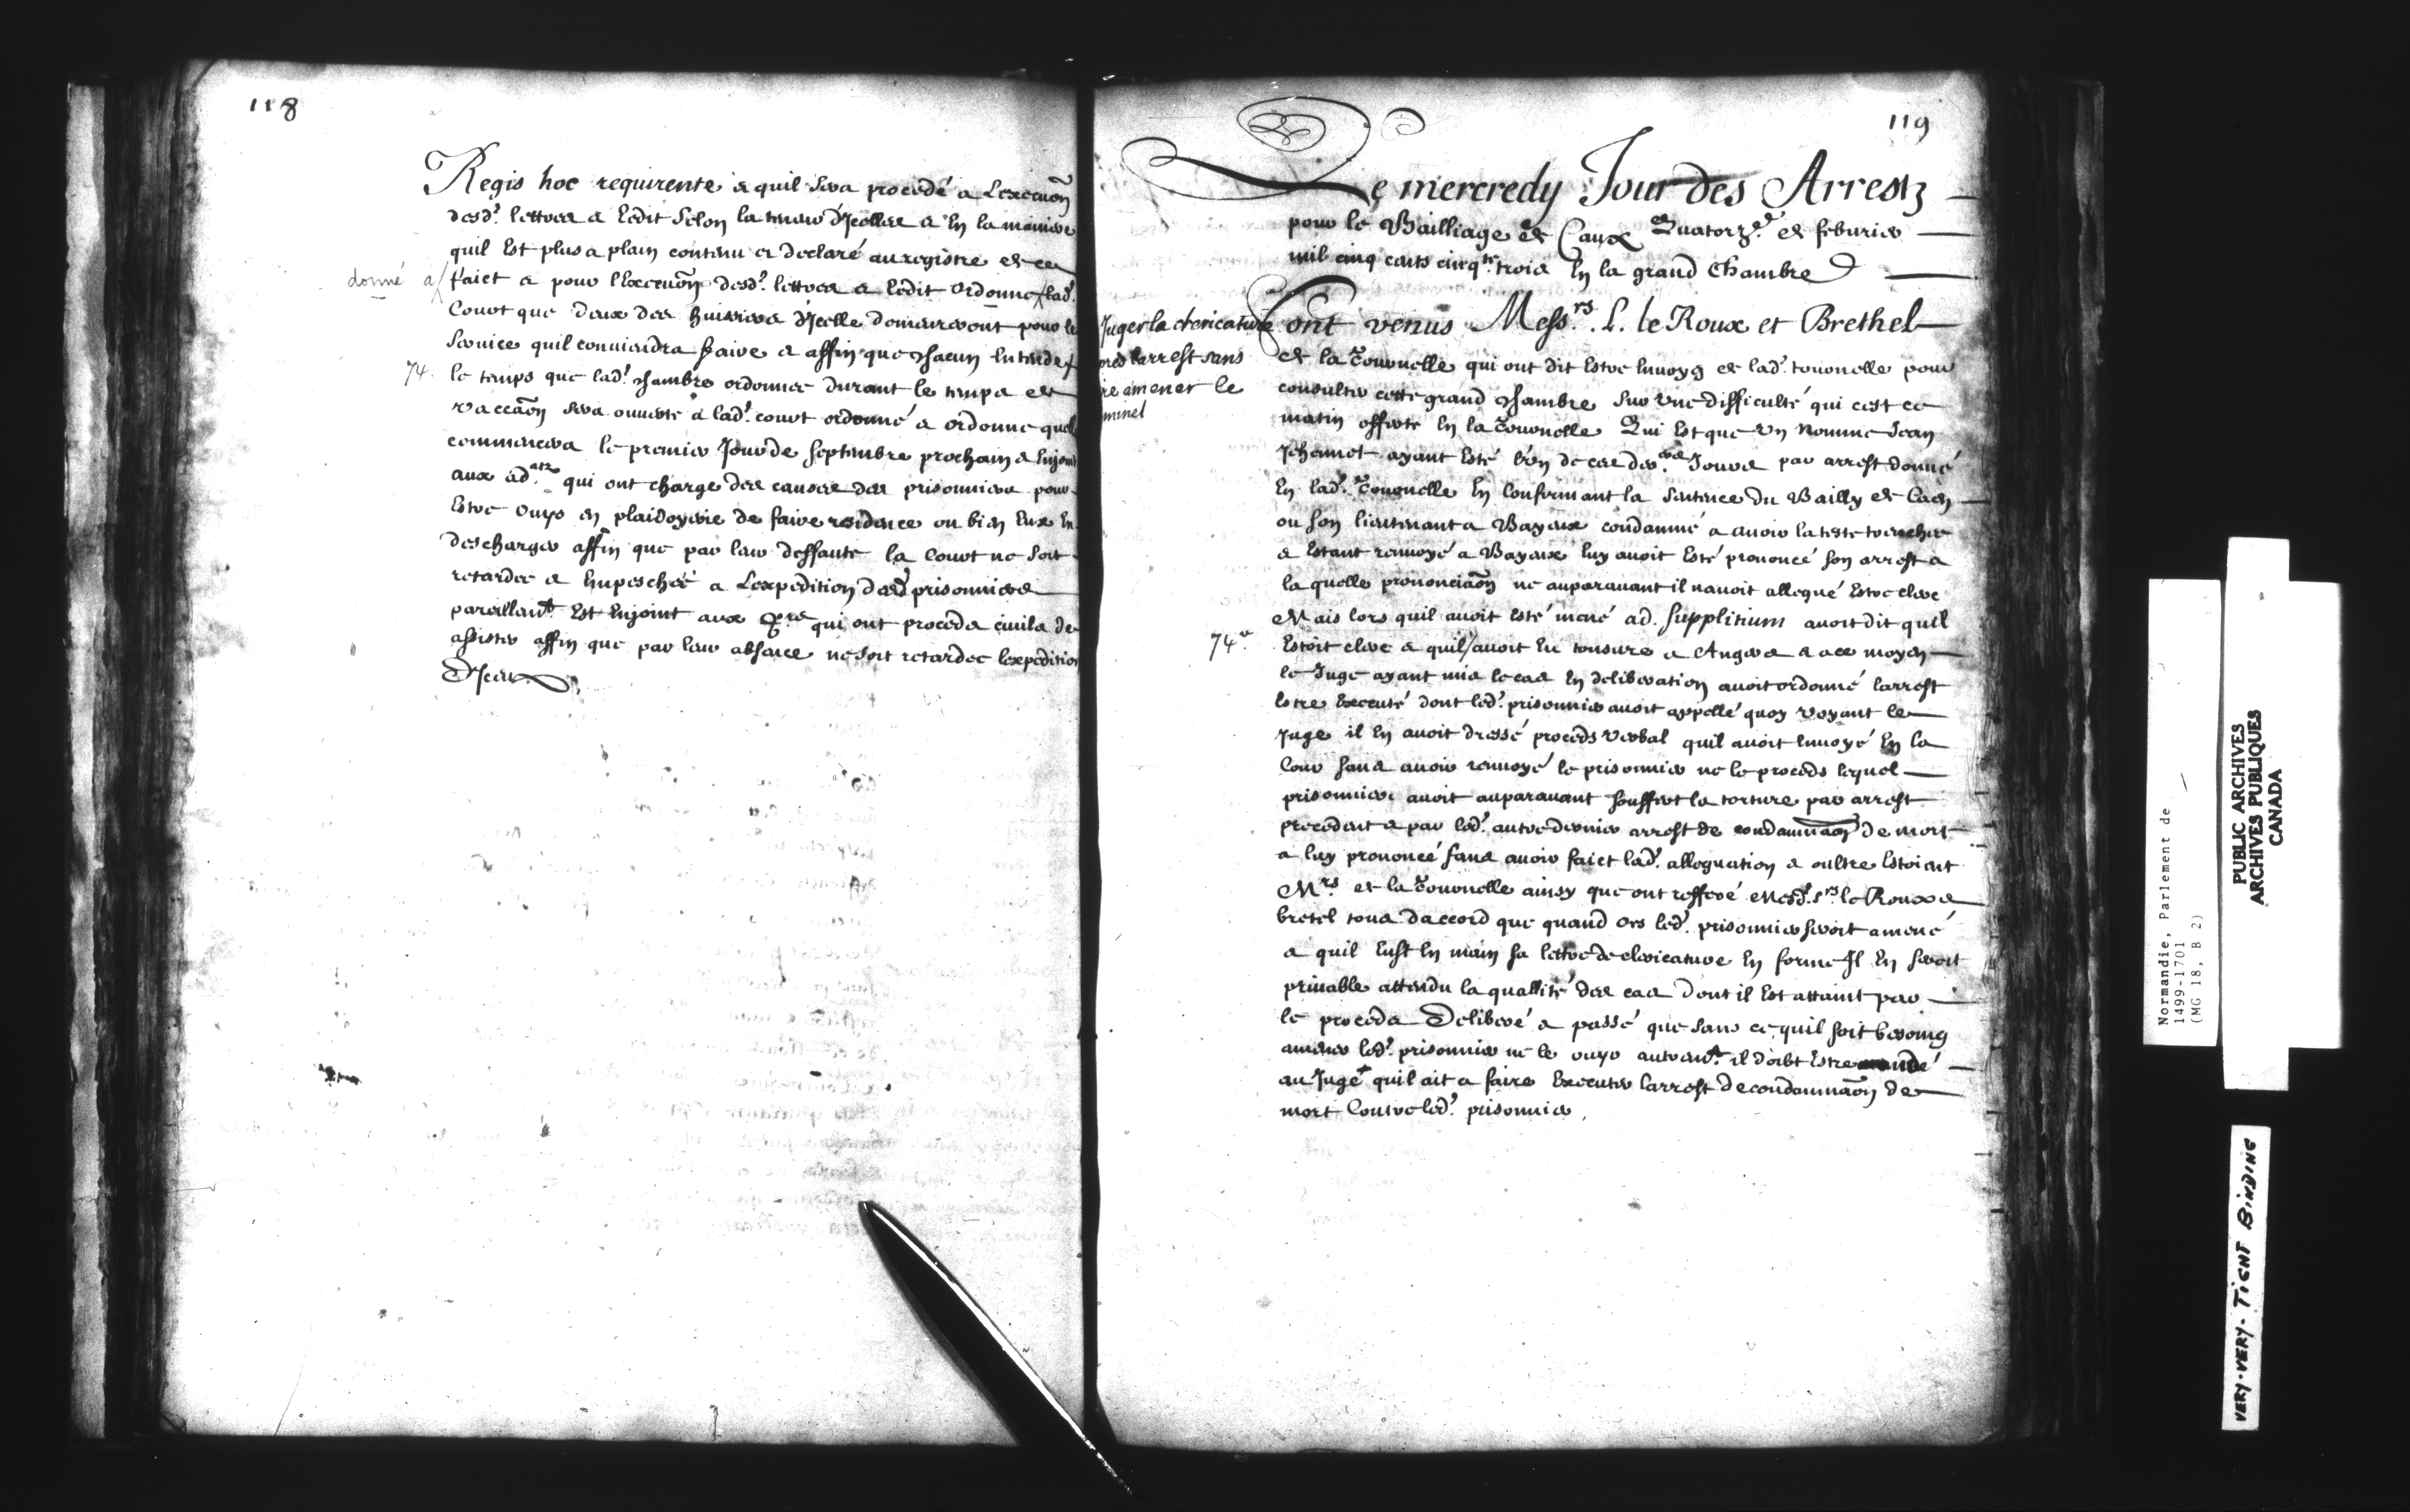 118
Regis hoc requirente & quil sera procedé a Lexecuõn
desd. lettres & ledit selon la teneur d'Icelles & En la maniere
quil Est plus a plain contenu et declaré au registre de ce
donné a/ faict & pour l'Execuõn desd. lettres & ledit ordonne / lad.
Court que deux des huissiers d'Icelle demeureront pour le
seruice quil conuiendra faire & affin que chacun Entende
74. le temps que lad. chambre ordonnee durant le temps de
vaccaõn sera ouuerte a lad. court ordonné & ordonne quel
commencera le premier Jour de septembre prochain & Enjoint
aux ad.atz qui ont charge des causes des prisonniers pour
Estre ouys en plaidoyerie de faire residence ou bien Eux En
descharger affin que par leur deffaute la Court ne soit
retardee & Empeschée a Lexpedition desd. prisonniers
pareillem.t Est Enjoint aux p.rs qui ont proceds ciuils de
assister affin que par leur absence ne soit retardee lexpedition
D'Iceux
119
Le mercredy Jour des Arrestz
pour le Bailliage de Caux Quatorz.e de feburier
mil cinq cents cinq.te trois En la grand Chambre
Juger la clericature
pres larrest sans
re amener le
minel
Sont venus Mess.rs L. le Roux et Brethel
de la Tournelle qui ont dit Estre Enuoyés de lad. tournelle pour
consulter cette grand chambre sur vne difficulté qui cest ce
matin offerte En la Tournelle Qui Est que vn nomme Jean
Jehennot ayant Esté l'vn de ces der.ers Jours par arrest donné
En lad. Tournelle En confirmant la sentence du Bailly de Caen
ou son lieutenant a Bayeux condamné a auoir la teste trenchee
& Estant renuoyé a Bayeux luy auoit Esté prononcé son arrest a
la quelle prononciaõn ne auparauant il nauoit allegué Estre clerc
Mais lors quil auoit Esté mené ad supplitium auoit dit quil
74.e Estoit clerc & quil / auoit Eu tonsure a Angers & a ce moyen
le Juge ayant mis le cas En deliberation auoit ordonné larrest
Estre Executé dont led. prisonnier auoit appellé quoy voyant le
Juge il En auoit dressé proceds verbal quil auoit Enuoyé En la
Cour sans auoir renuoyé le prisonnier ne le proceds lequel
prisonnier auoit auparauant souffert la torture par arrest
precedent & par led. autre dernier arrest de condamnaõn de mort
a luy prononcé sans auoir faict lad. allegation & oultre Estoient
M.rs de la Tournelle ainsy que ont refferé mesd. s.rs le Roux &
bretel tous daccord que quand ors led. prisonnier seroit amené
& quil Eust En main sa lettre de clericature En forme Il En seroit
priuable attendu la quallité des cas dont il Est attaint par
le proceds Deliberé & passé que sans ce quil soit besoing
amener led. prisonnier ne le ouyr autrem.t il doibt Estre mandé
au Juge quil ait a faire Executer larrest de condamnaõn de
mort Contre led. prisonnier.
Normandie, Parlement de
1499-1701
(MG 18, B 2)
PUBLIC ARCHIVES
ARCHIVES PUBLIQUES
CANADA
VERY-VERY-TIGHT BINDING